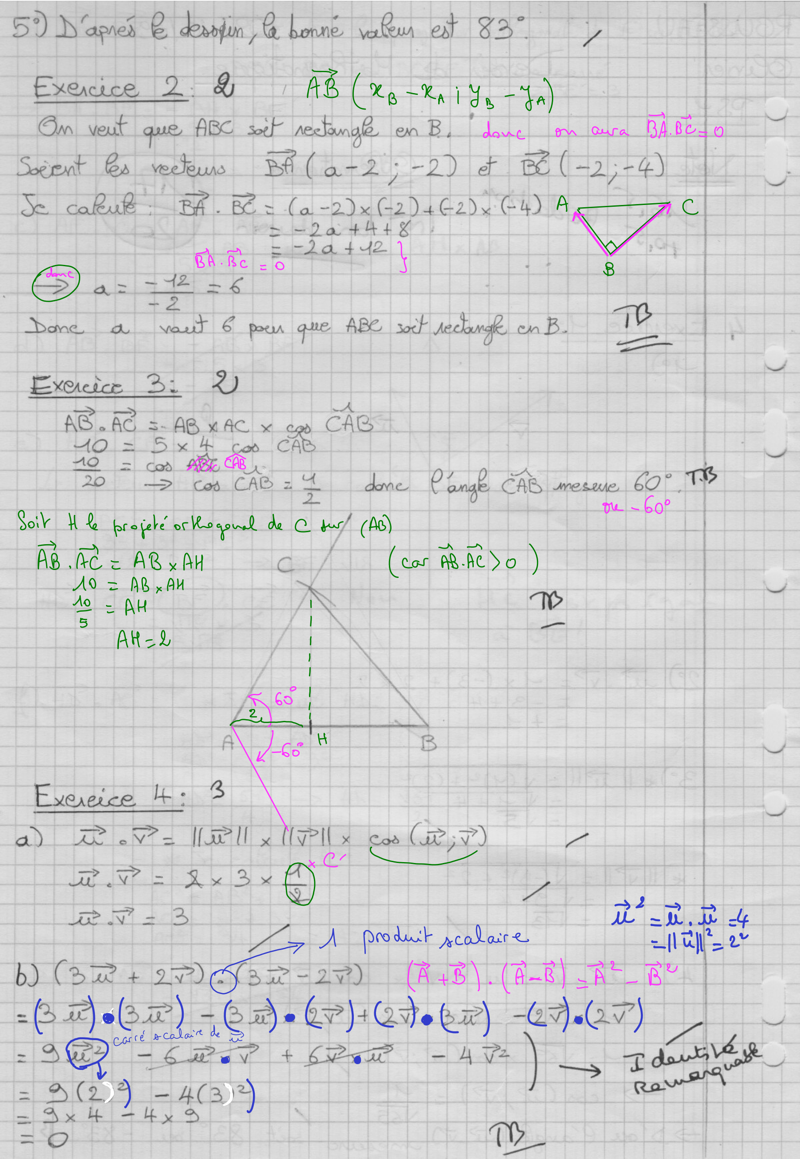 5°) D'aprés le dessin, la bonne valeur est 83°.
Exercice 2: 2 AB⃗ (x_B - x_A ; y_B - y_A)
On veut que ABC soit rectangle en B. donc on aura BA⃗.BC⃗=0
Soient les vecteurs BA⃗ (a-2 ; -2) et BC⃗ (-2;-4)
Je calcule: BA⃗ . BC⃗ = (a-2)×(-2)+(-2)×(-4)
= -2a + 4 + 8
= -2a + 12 }
BA⃗.BC⃗ = 0
donc → a = -12/-2 = 6
A C
B
Donc a vaut 6 pour que ABC soit rectangle en B. TB
Exercice 3: 2
AB⃗.AC⃗ = AB × AC × cos CAB^
10 = 5 × 4 cos CAB^
10/20 = cos CAB^
→ cos CAB^ = 1/2 donc l'angle CAB^ mesure 60°. T.B
ou -60°
Soit H le projeté orthogonal de C sur (AB)
AB⃗.AC⃗ = AB × AH (car AB⃗.AC⃗ > 0)
10 = AB × AH
10/5 = AH
AH = 2
TB
C
60°
2
A H B
-60°
Exercice 4: 3
a) u⃗ . v⃗ = ||u⃗|| × ||v⃗|| × cos (u⃗ ; v⃗)
× C'
u⃗ . v⃗ = 2 × 3 × 1/2
u⃗ . v⃗ = 3
u⃗² = u⃗ . u⃗ = 4
= ||u⃗||² = 2²
→ 1 produit scalaire
b) (3u⃗ + 2v⃗) . (3u⃗ - 2v⃗) (A⃗ + B⃗) . (A⃗ - B⃗) = A⃗² - B⃗²
= (3u⃗) • (3u⃗) - (3u⃗) • (2v⃗) + (2v⃗) • (3u⃗) - (2v⃗) • (2v⃗)
carré scalaire de u⃗
= 9u⃗² - 6u⃗ • v⃗ + 6v⃗ • u⃗ - 4v⃗² ) → Identité Remarquable
= 9(2)² - 4(3)²
= 9 × 4 - 4 × 9
= 0
TB